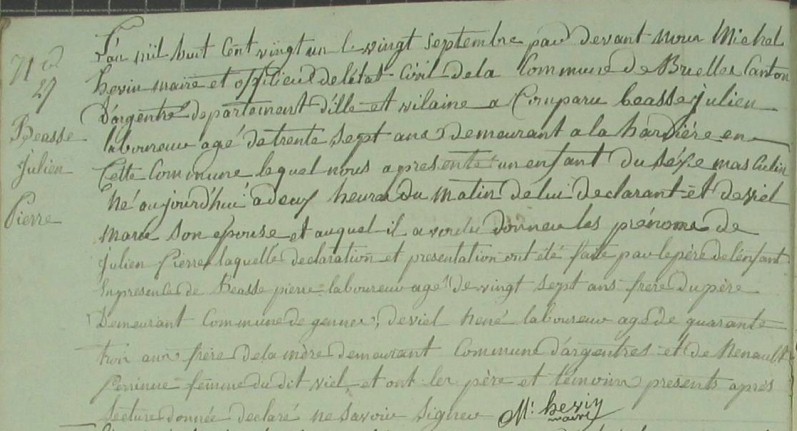 N.º
27
Beasse
Julien
Pierre
L'an mil huit cent vingt un le vingt septembre par devant nous Michel
hevin maire et officier de létat Civil de la Commune de Brielles Canton
D'argentré departement d'ille et vilaine a Comparu beasse julien
laboureur agé de trente sept ans demeurant a la hardière en
Cette Commune lequel nous a presenté un enfant du séxe masculin
Né aujourd'hui a deux heures du matin de lui declarant et de viel
marie son épouse et auquel il a voulu donner les prénoms de
Julien Pierre laquelle declaration et presentation ont été faite par le père de l'enfant
En presence de beasse pierre laboureur agé de vingt sept ans frère du père
Demeurant Commune de gennes, de viel réné laboureur agé de quarante
trois ans frère de la mère demeurant Commune d'argentrés et de Renault
Perinne femme du dit viel, et ont les père et témoins presents après
lecture donnée declaré ne savoir signer M. hevin
maire